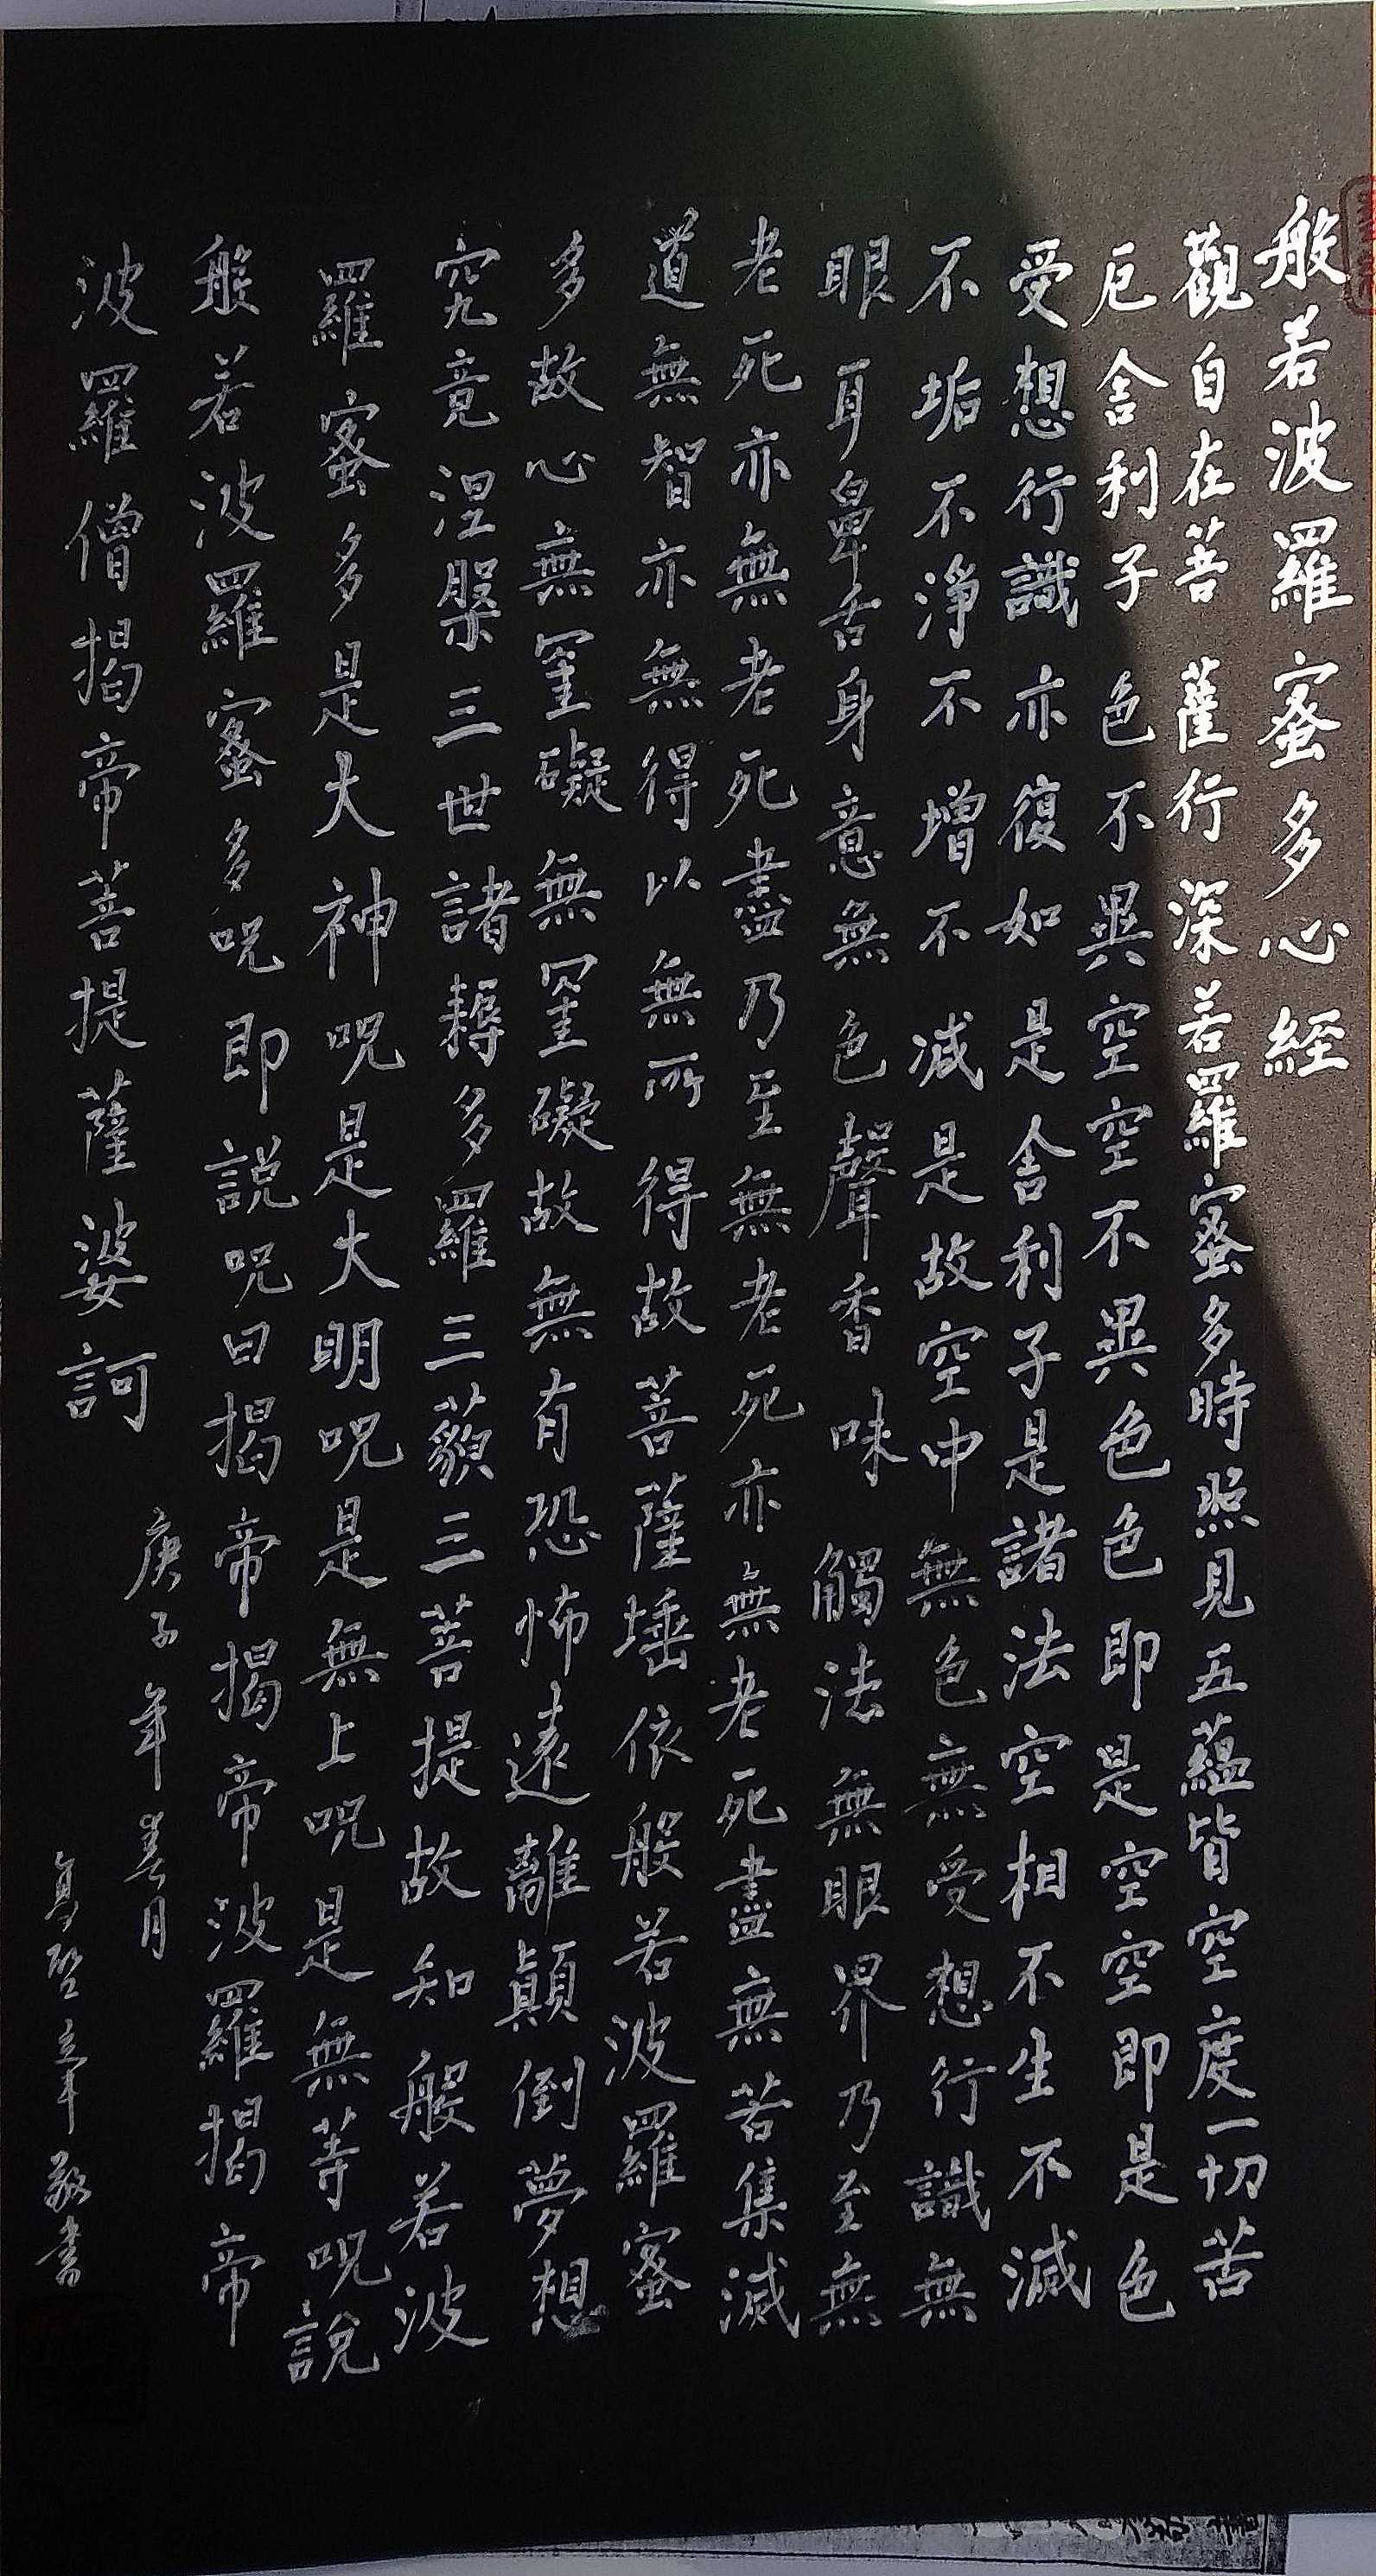 般若波羅蜜多心經
觀自在菩薩行深若羅蜜多時照見五蘊皆空度一切苦
厄舍利子色不異空空不異色色即是空空即是色
受想行識亦復如是舍利子是諸法空相不生不滅
不垢不淨不增不減是故空中無色無受想行識無
眼耳鼻舌身意無色聲香味觸法無眼界乃至無
老死亦無老死盡乃至無老死亦無老死盡無苦集滅
道無智亦無得以無所得故菩薩埵依般若波羅蜜
多故心無罣礙無罣礙故無有恐怖遠離顛倒夢想
究竟涅槃三世諸耨多羅三藐三菩提故知般若波
羅蜜多是大神咒是大明咒是無上咒是無等咒說
般若波羅蜜多咒即說咒曰揭帝揭帝波羅揭帝
波羅僧揭帝菩提薩婆訶
庚子年春月
敬書